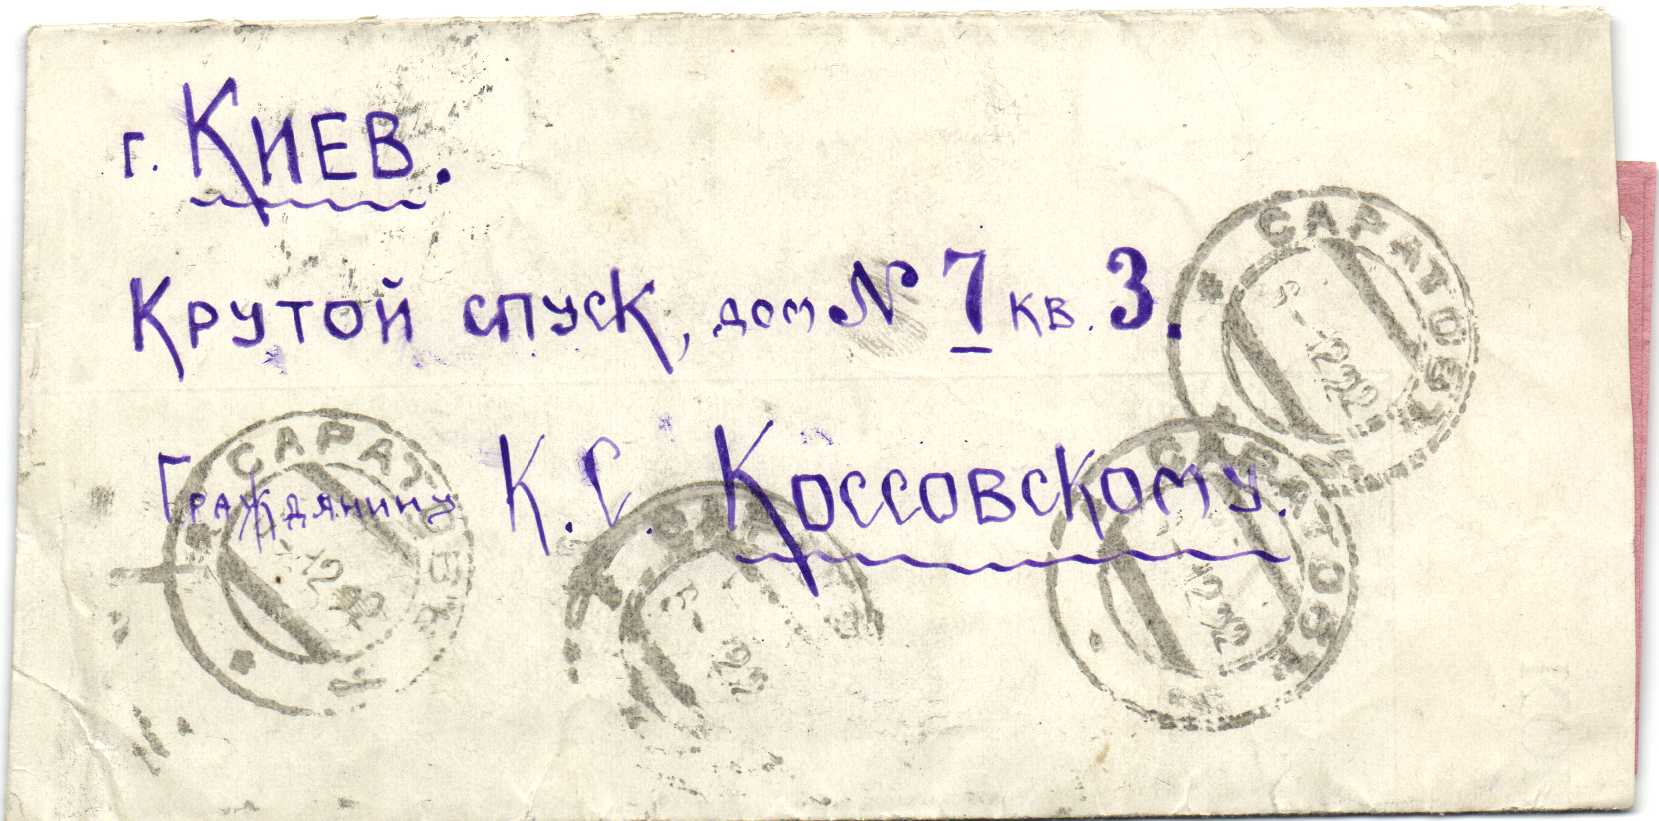 г. Киев.
Крутой спуск, дом № 7 кв. 3.
Гражданину К. С. Коссовскому.
САРАТОВ
САРАТОВ
САРАТОВ